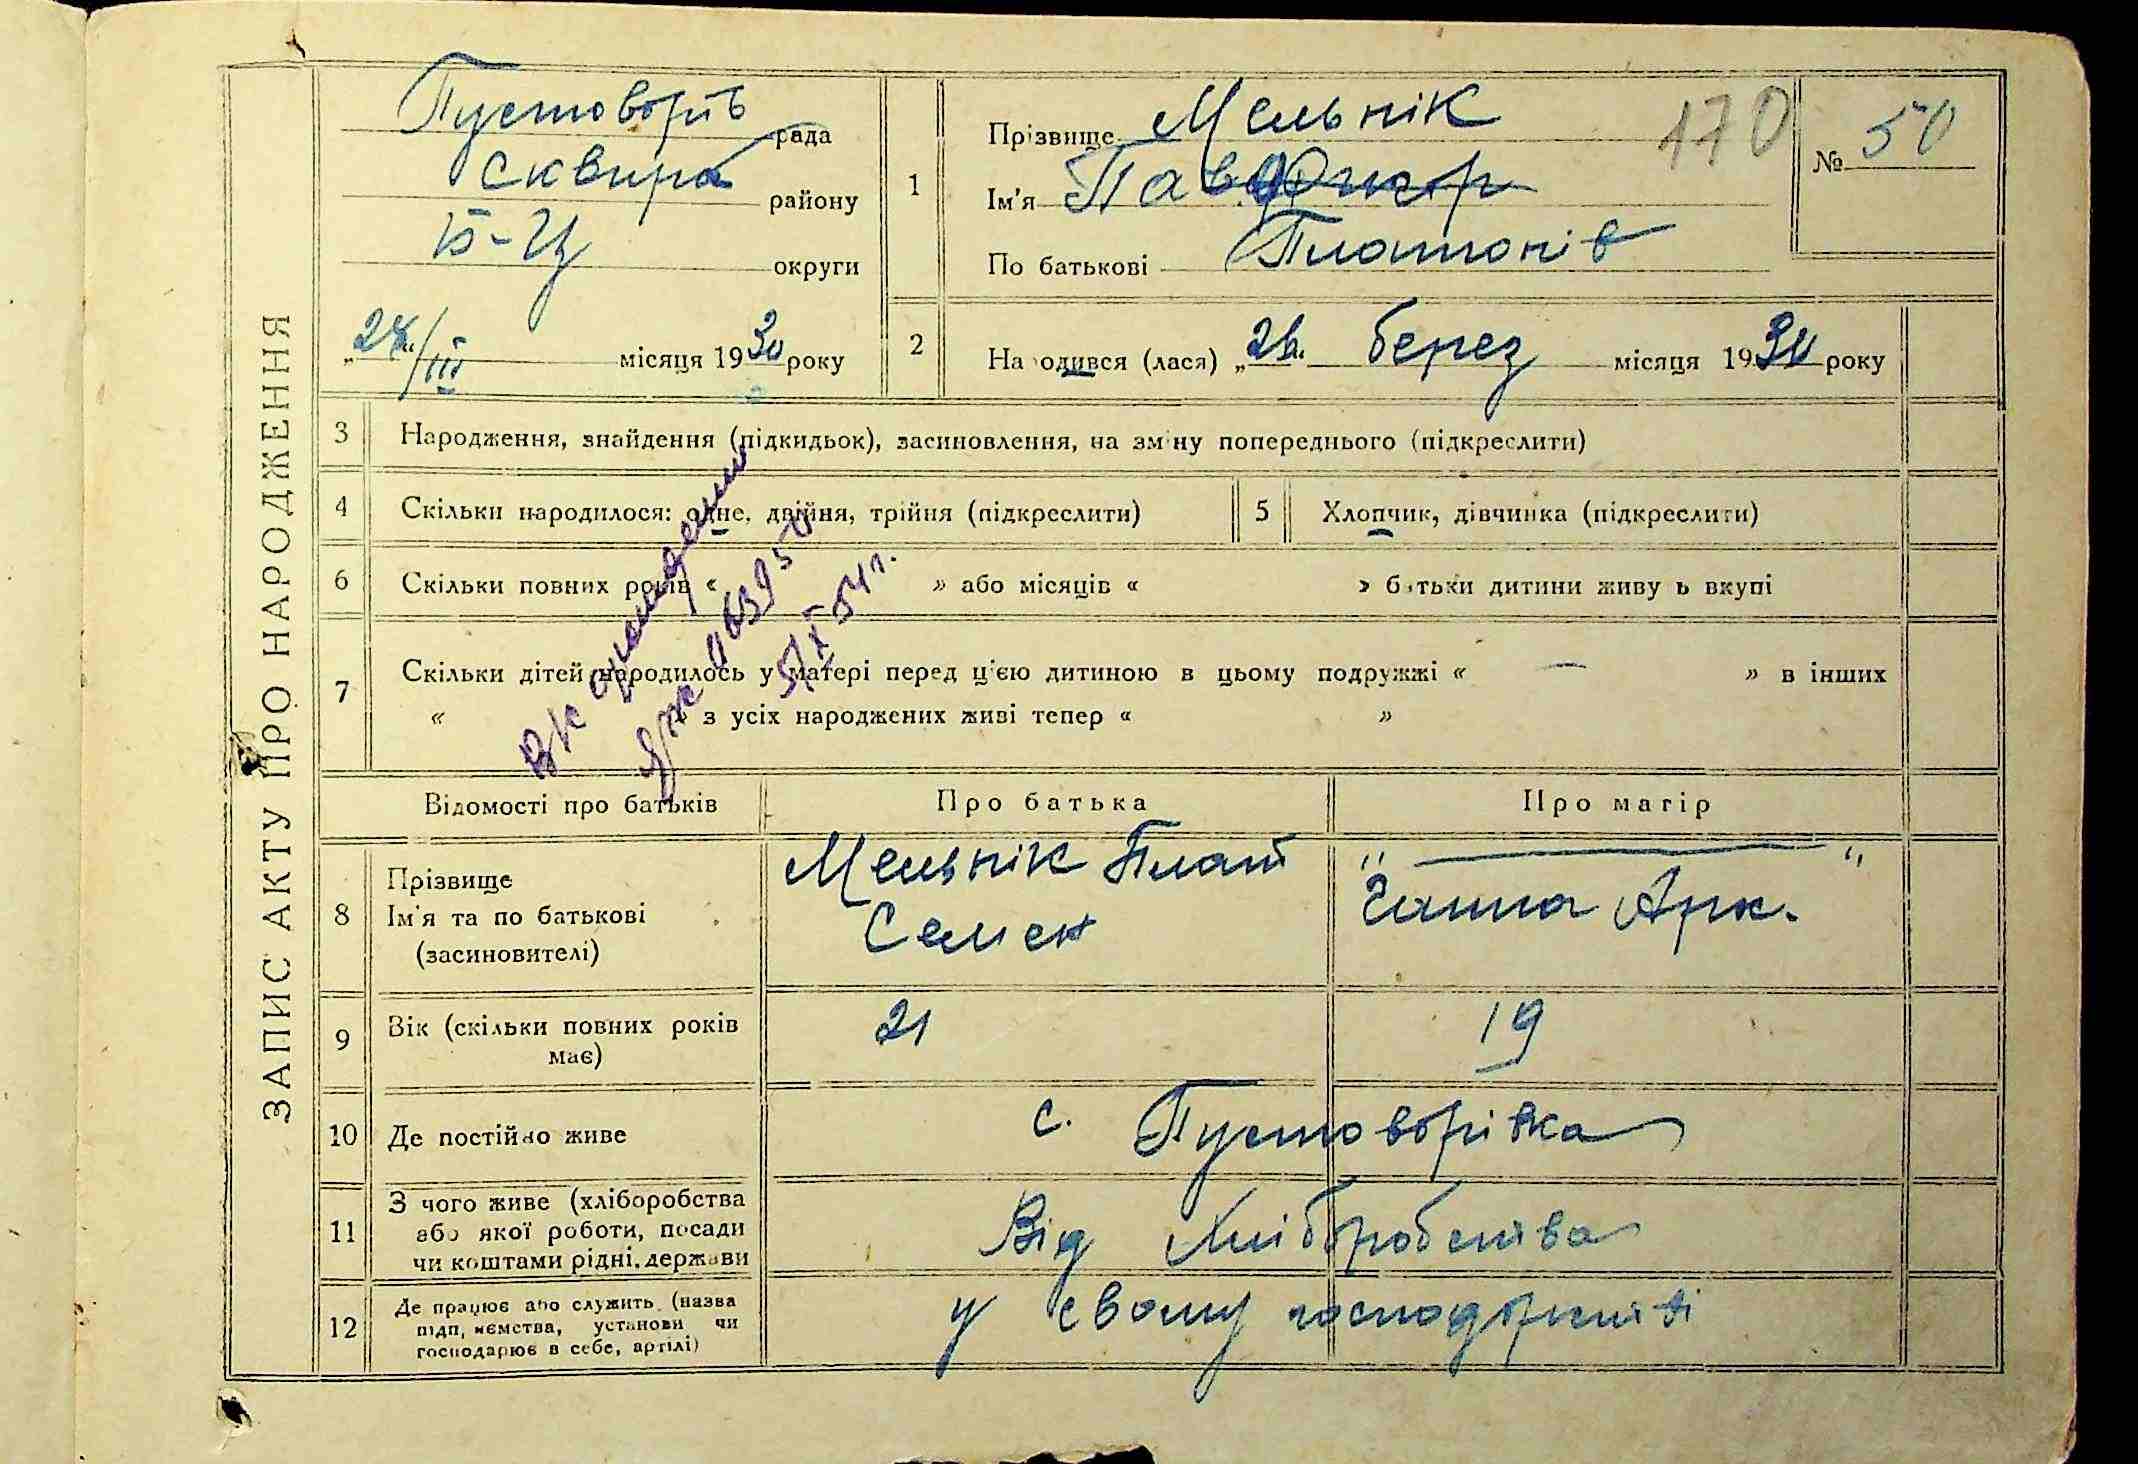 ЗАПИС АКТУ ПРО НАРОДЖЕННЯ
Пустоворів рада
Сквира району
Б-Ц округи
„24“/III місяця 1930 року
1
Прізвище Мельнік
170
№ 50
Ім'я Павло
По батькові Платонів
2
Народився (лася) „ “ берез місяця 1930 року
3 Народження, знайдення (підкидьок), засиновлення, на зміну попереднього (підкреслити)
4 Скільки народилося: одне, двійня, трійня (підкреслити) 5 Хлопчик, дівчинка (підкреслити)
6 Скільки повних років « » або місяців « » батьки дитини живуть вкупі
7 Скільки дітей народилось у матері перед ц'єю дитиною в цьому подружжі « — » в інших
« » з усіх народжених живі тепер « »
ЯЖ 063950
5/X 54 г.
Відомості про батьків Про батька Про матір
8 Прізвище
Ім'я та по батькові
(засиновителі)
Мельнік Плат
Семен
„ — “
Ганна Арк.
9 Вік (скільки повних років має) 21 19
10 Де постійно живе с. Пустоворівка
11 З чого живе (хліборобства
або якої роботи, посади
чи коштами рідні, держави
Від Хліборобства
12 Де працює або служить (назва
підприємства, установи чи
господарює в себе, артілі)
у свому господарстві